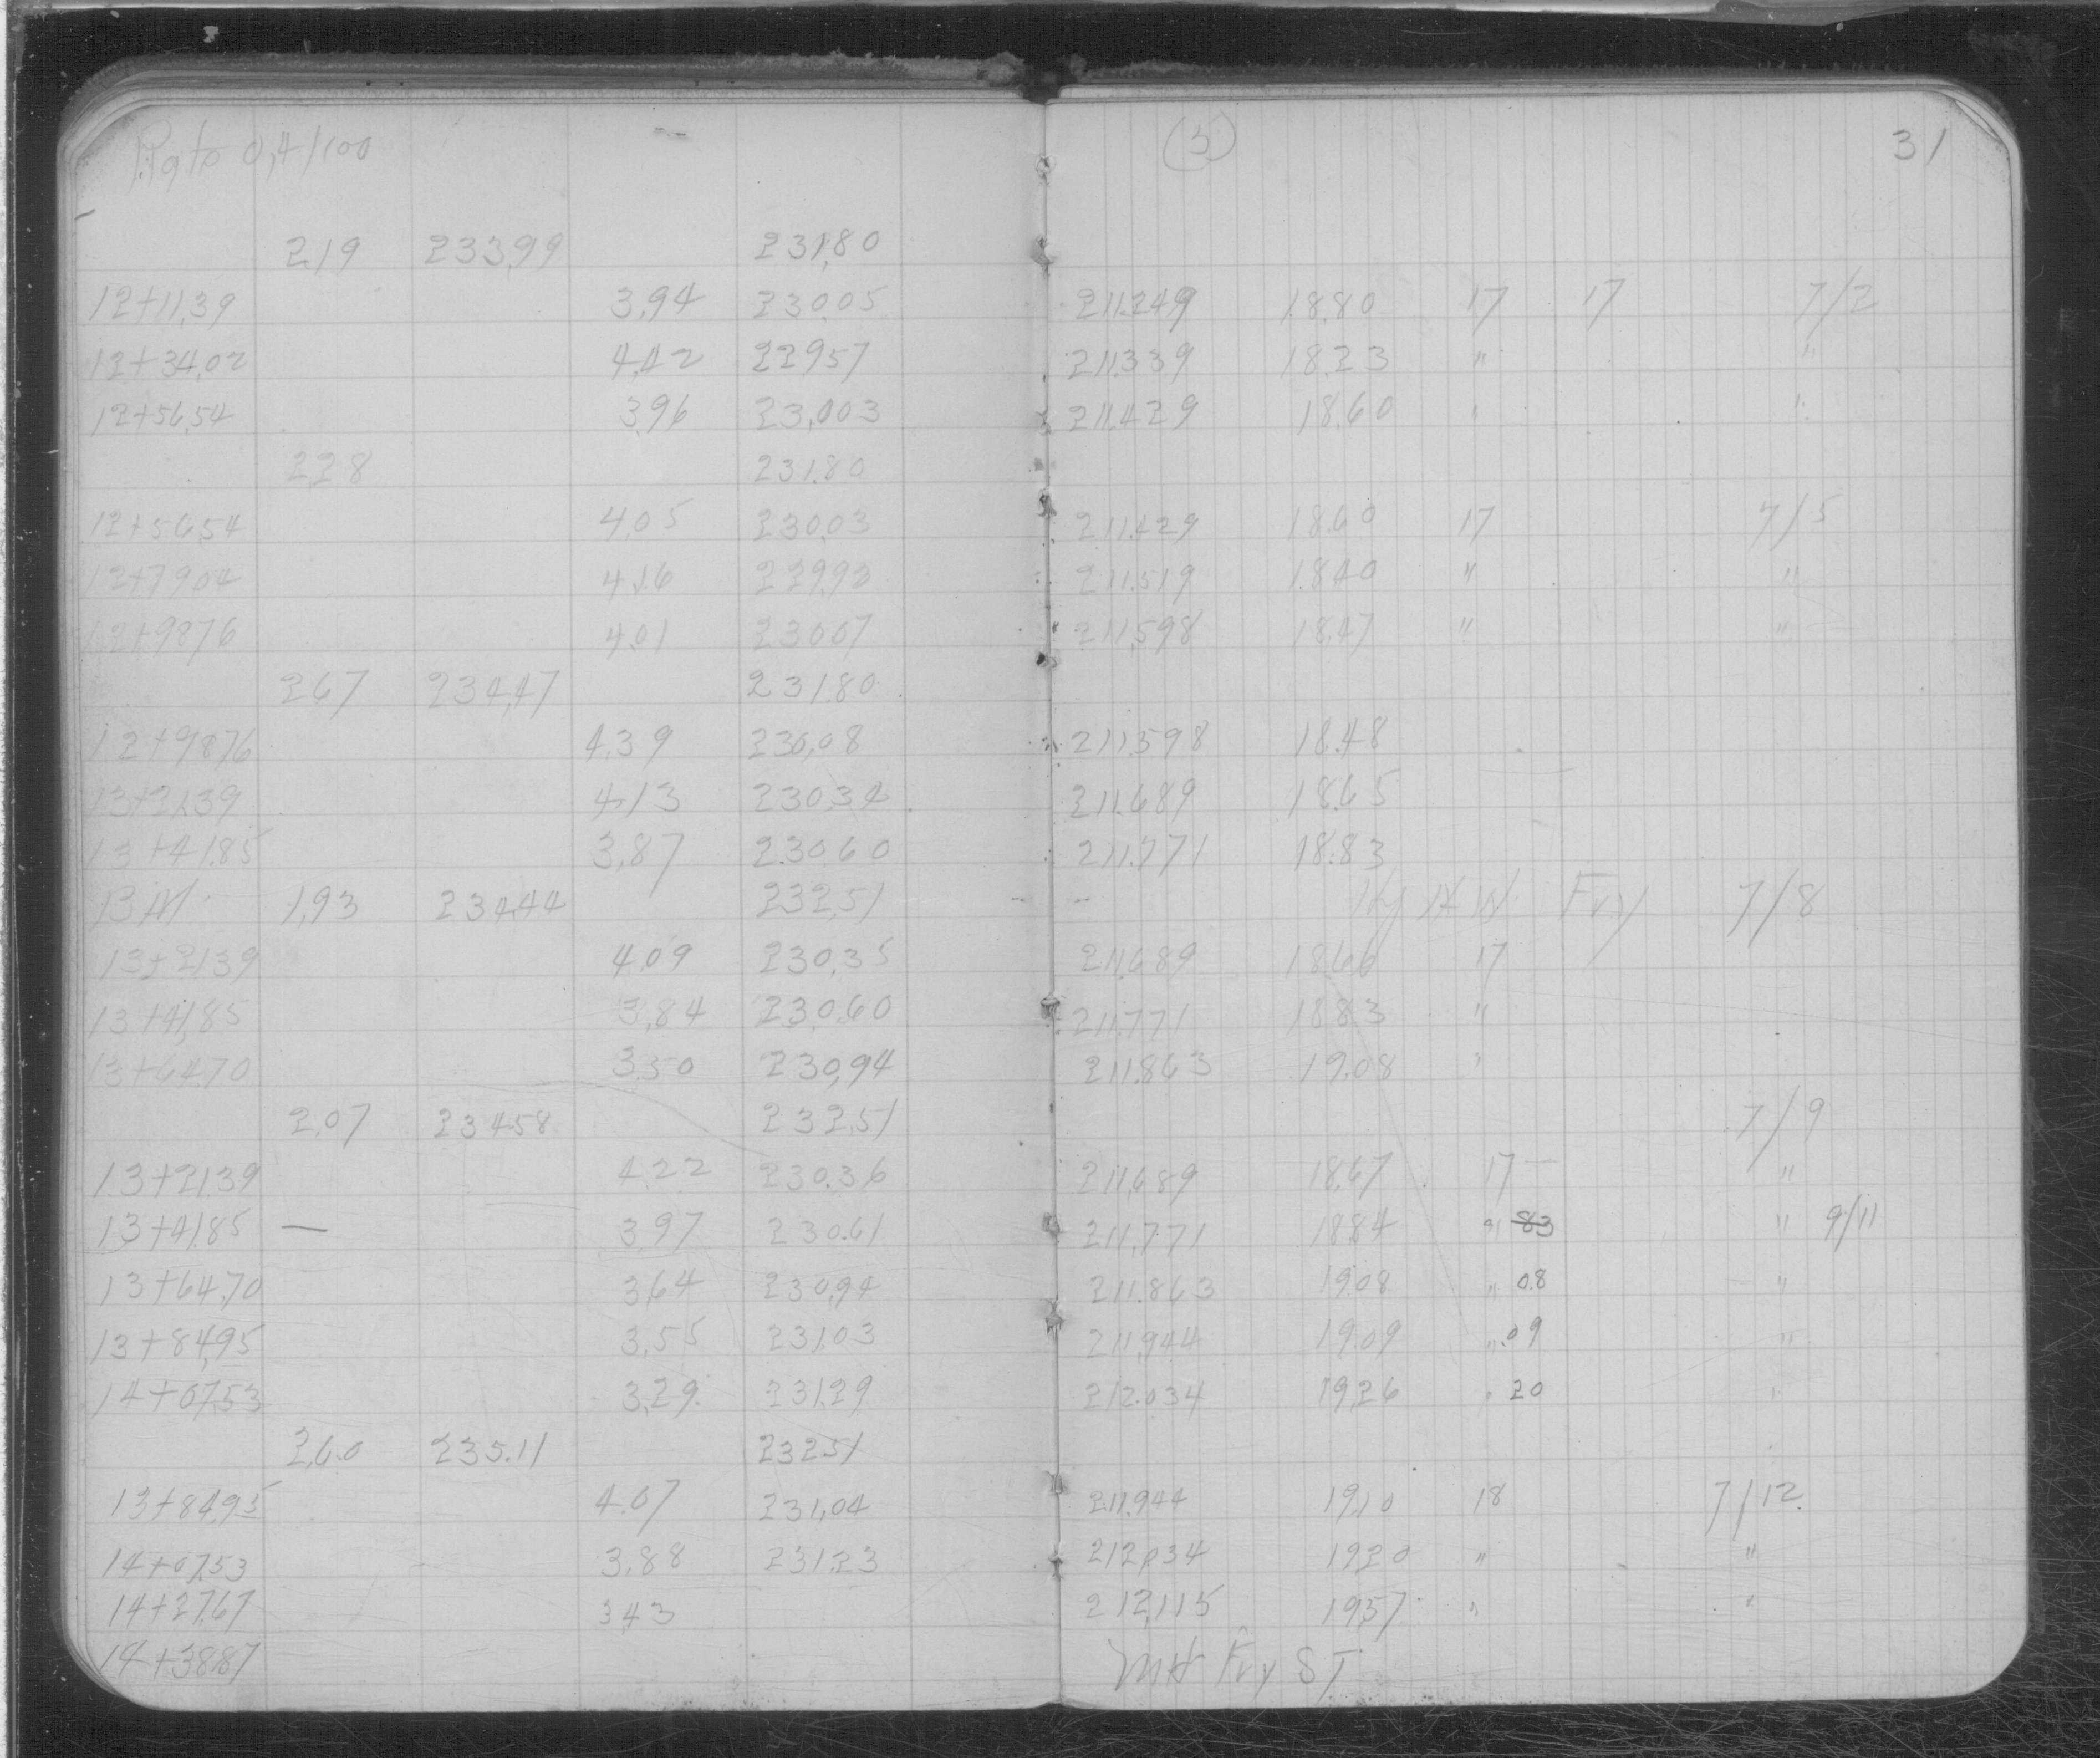 Rate 0.4/100 (3) 31
2.19 233.99 231.80
12+11.39 3.94 230.05 211.249 18.80 17 17 7/2
12+34.02 4.42 229.57 211.339 18.23 " "
12+56.54 3.96 23.003 211.429 18.60 " "
2.28 231.80
12+56.54 4.05 230.03 211.429 18.60 17 7/5
12+79.04 4.16 229.92 211.519 18.40 " "
12+98.76 4.01 230.07 211.598 18.47 " "
2.67 234.47 231.80
12+98.76 4.39 230.08 211.598 18.48
13+21.39 4.13 230.34 211.689 18.65
13+41.85 3.87 230.60 211.771 18.83
BM 1.93 234.44 232.51 Fry 7/8
13+21.39 4.09 230.35 211.689 18.66 17
13+41.85 3.84 230.60 211.771 18.83 "
13+64.70 3.50 230.94 211.863 19.08 "
2.07 234.58 232.51 7/9
13+21.39 4.22 230.36 211.689 18.67 17 "
13+41.85 — 3.97 230.61 211.771 18.84 " 83 " 9/11
13+64.70 3.64 230.94 211.863 19.08 " 08 "
13+84.95 3.55 231.03 211.944 19.09 " .09 "
14+07.53 3.29 231.29 212.034 19.26 " 20 "
2.60 235.11 232.51
13+84.95 4.07 231.04 211.944 19.10 18 7/12
14+07.53 3.88 231.23 212.034 19.20 " "
14+27.67 3.43 212.115 19.57 " "
14+38.87 MH Fry ST